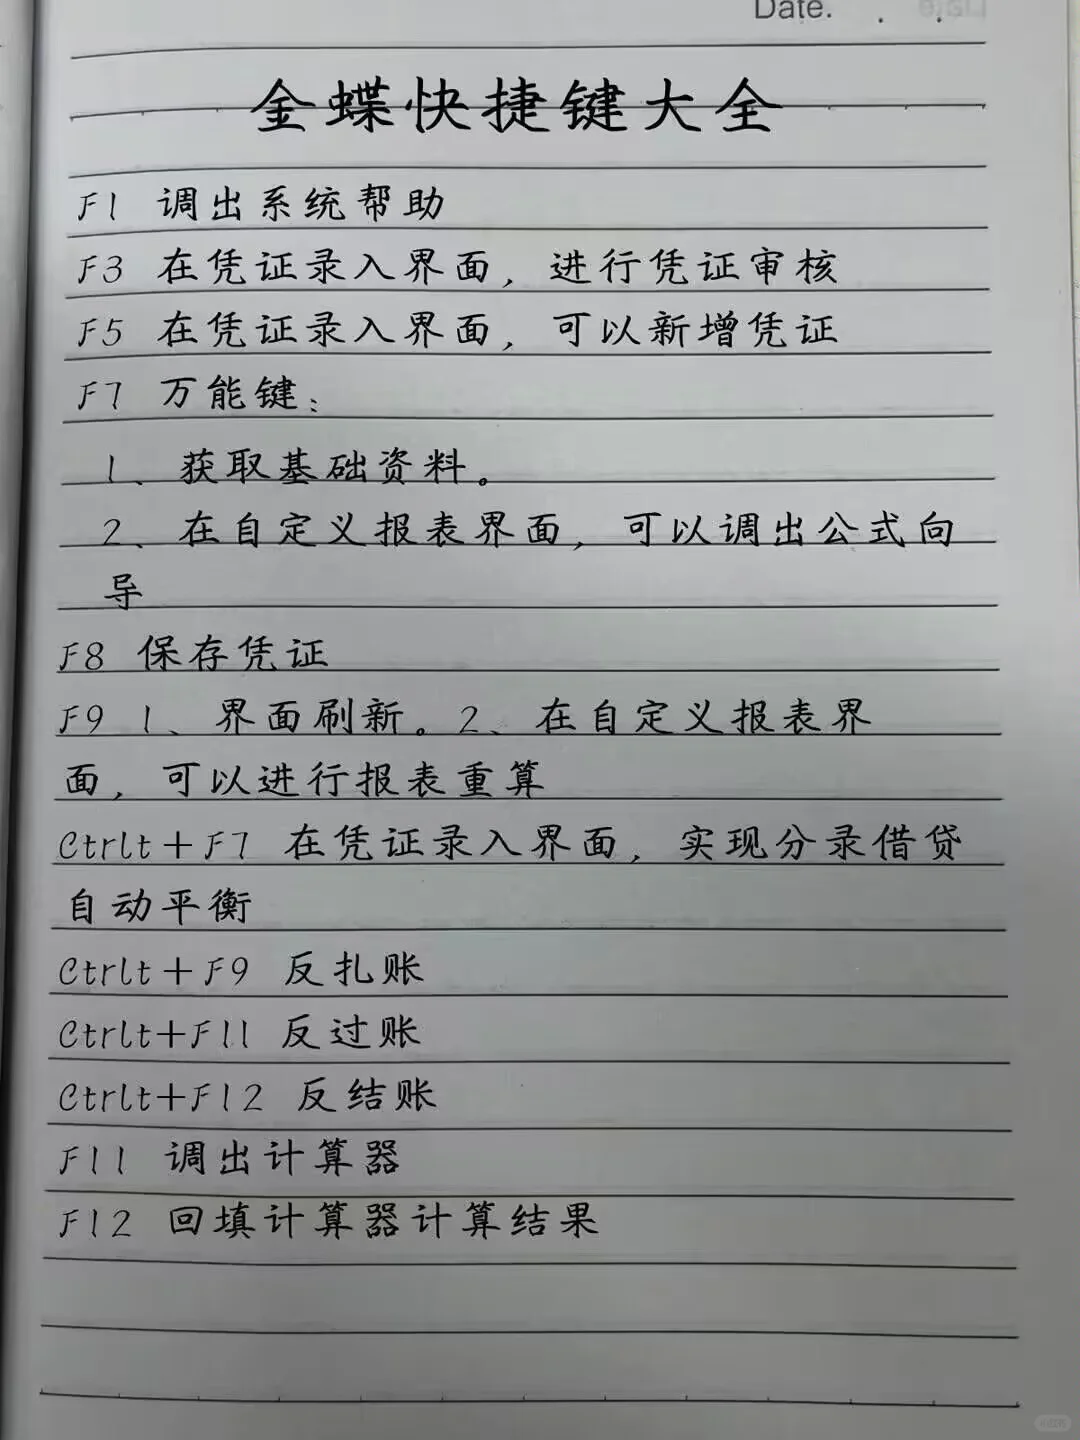 Date.
金蝶快捷键大全
F1 调出系统帮助
F3 在凭证录入界面，进行凭证审核
F5 在凭证录入界面，可以新增凭证
F7 万能键：
1、获取基础资料。
2、在自定义报表界面，可以调出公式向
导
F8 保存凭证
F9 1、界面刷新。2、在自定义报表界
面，可以进行报表重算
Ctrlt＋F7 在凭证录入界面，实现分录借贷
自动平衡
Ctrlt＋F9 反扎账
Ctrlt+F11 反过账
Ctrlt+F12 反结账
F11 调出计算器
F12 回填计算器计算结果